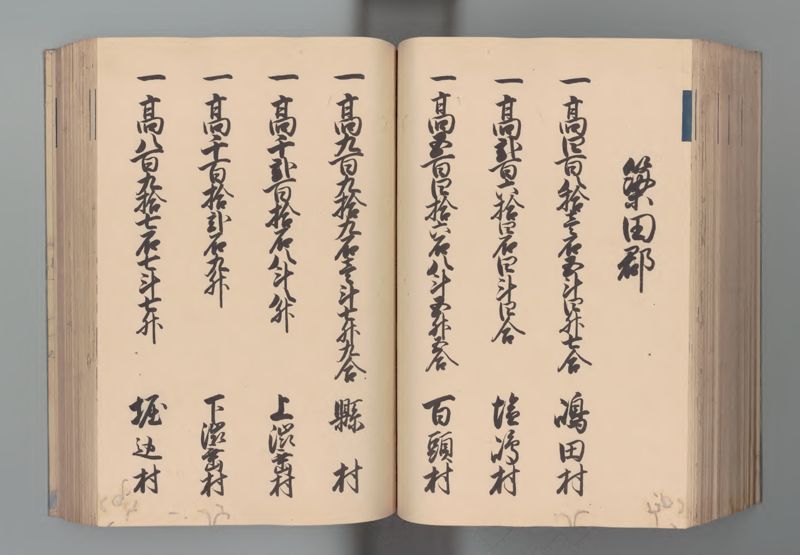 築田郡
一 高四百八拾壱石五斗四升七合 嶋田村
一 高弐百六拾四石四斗四合 塩嶋村
一 高五百四拾六石八斗五升五合 百頭村
一 高九百九拾九石壱斗七升九合 縣村
一 高千弐百拾石八斗八升 上渋垂村
一 高千百拾弐石九升 下渋垂村
一 高八百九拾七石七斗七升 堀込村